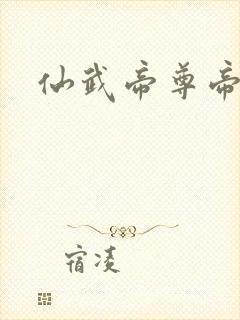 仙武帝尊帝
宿凌